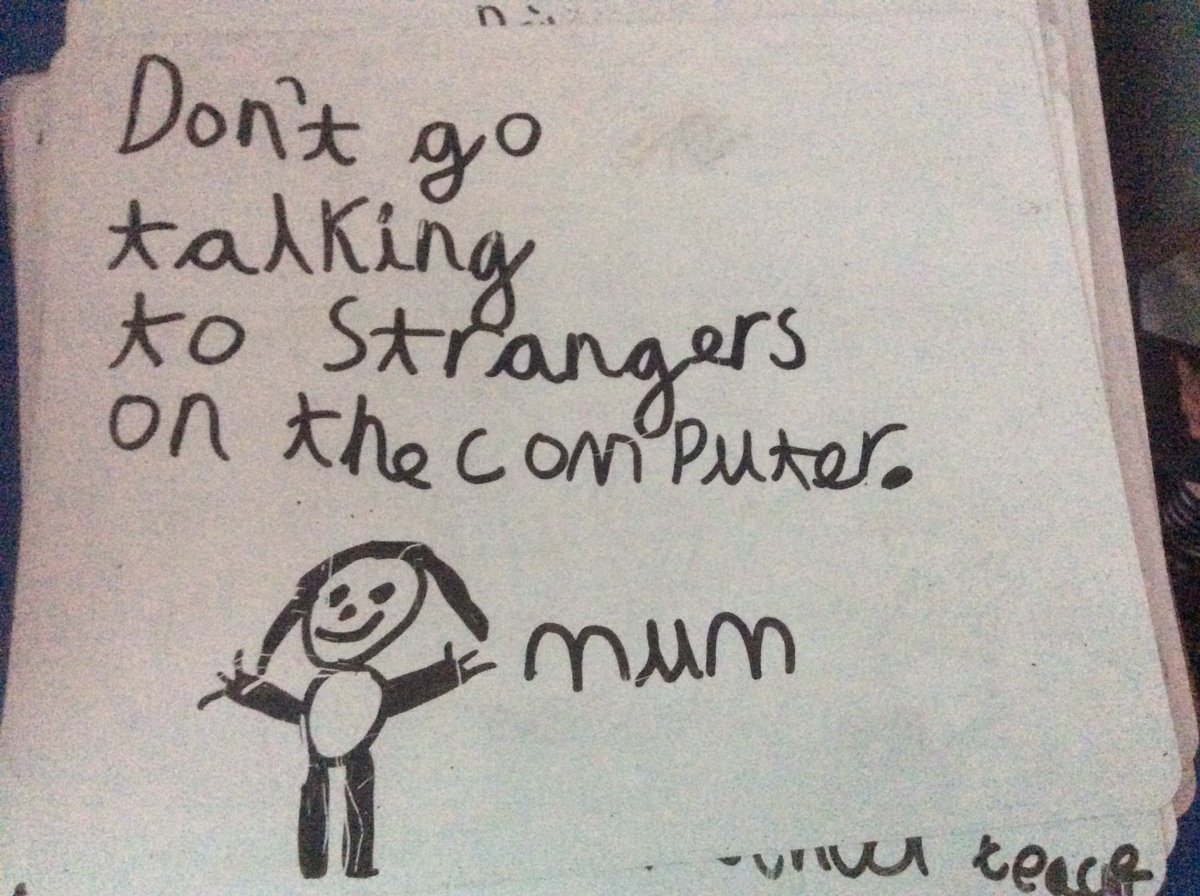 Don't go
talking
to Strangers
on the computer.
mum